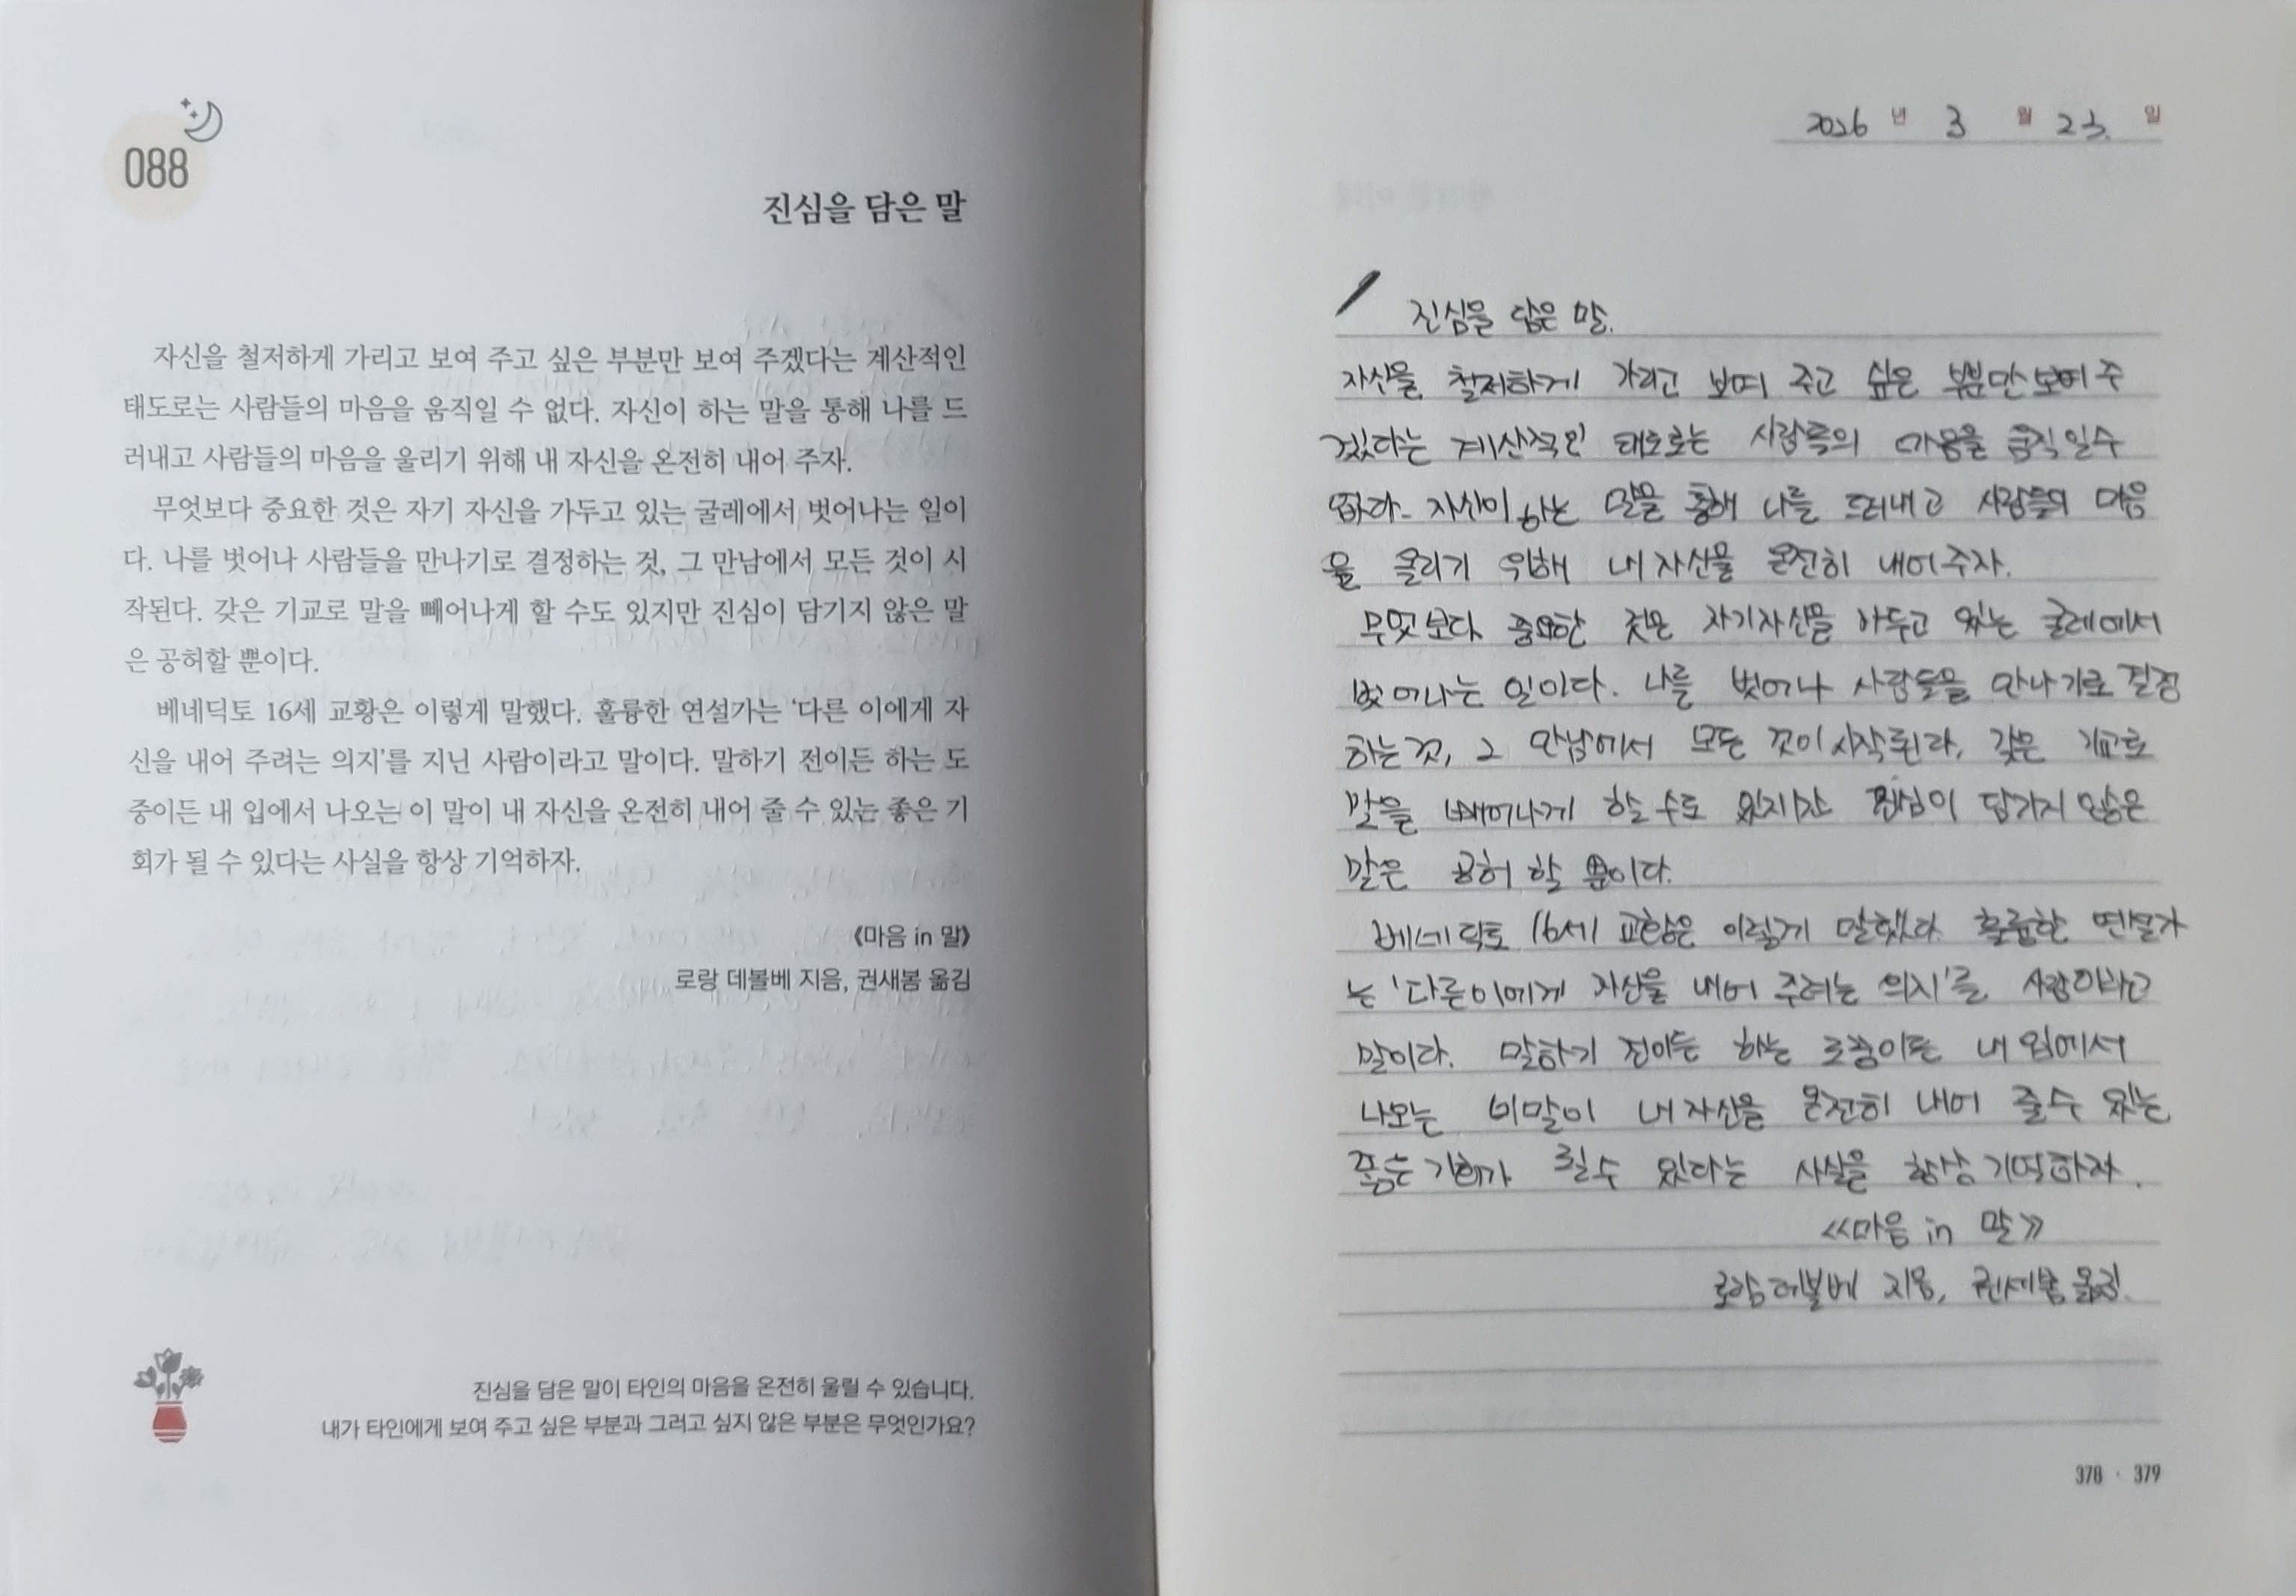 088
진심을 담은 말
자신을 철저하게 가리고 보여 주고 싶은 부분만 보여 주겠다는 계산적인
태도로는 사람들의 마음을 움직일 수 없다. 자신이 하는 말을 통해 나를 드
러내고 사람들의 마음을 울리기 위해 내 자신을 온전히 내어 주자.
무엇보다 중요한 것은 자기 자신을 가두고 있는 굴레에서 벗어나는 일이
다. 나를 벗어나 사람들을 만나기로 결정하는 것, 그 만남에서 모든 것이 시
작된다. 갖은 기교로 말을 빼어나게 할 수도 있지만 진심이 담기지 않은 말
은 공허할 뿐이다.
베네딕토 16세 교황은 이렇게 말했다. 훌륭한 연설가는 ‘다른 이에게 자
신을 내어 주려는 의지’를 지닌 사람이라고 말이다. 말하기 전이든 하는 도
중이든 내 입에서 나오는 이 말이 내 자신을 온전히 내어 줄 수 있는 좋은 기
회가 될 수 있다는 사실을 항상 기억하자.
《마음 in 말》
로랑 데볼베 지음, 권새봄 옮김
진심을 담은 말이 타인의 마음을 온전히 울릴 수 있습니다.
내가 타인에게 보여 주고 싶은 부분과 그러고 싶지 않은 부분은 무엇인가요?
2026 년 3 월 23. 일
진심을 담은 말.
자신을 철저하게 가리고 보여 주고 싶은 부분만 보여 주
겠다는 계산적인 태도로는 사람들의 마음을 움직일 수
없다. 자신이 하는 말을 통해 나를 드러내고 사람들의 마음
을 울리기 위해 내 자신을 온전히 내어 주자.
무엇보다 중요한 것은 자기 자신을 가두고 있는 굴레에서
벗어나는 일이다. 나를 벗어나 사람들을 만나기로 결정
하는 것, 그 만남에서 모든 것이 시작된다. 갖은 기교로
말을 빼어나게 할 수도 있지만 진심이 담기지 않은
말은 공허할 뿐이다.
베네딕토 16세 교황은 이렇게 말했다. 훌륭한 연설가
는 '다른 이에게 자신을 내어 주려는 의지'를 사람이라고
말이다. 말하기 전이든 하는 도중이든 내 입에서
나오는 이 말이 내 자신을 온전히 내어 줄 수 있는
좋은 기회가 될 수 있다는 사실을 항상 기억하자.
《마음 in 말》
로랑 데볼베 지음, 권세봄 옮김.
378 · 379